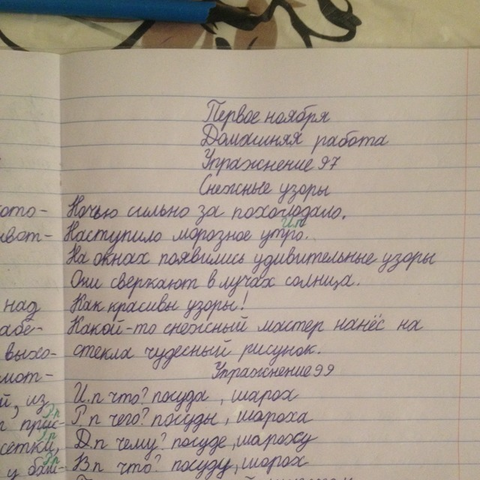 Первое ноября
Домашняя работа
Упражнение 97
Снежные узоры
Ночью сильно за похолодало.
И.п
Наступило морозное утро.
На окнах появились удивительные узоры
Они сверкают в лучах солнца.
Как красивы узоры!
Какой-то снежный мастер нанёс на
стекла чудесный рисунок.
Упражнение 99
И.п что? посуда, шарох
Р.п чего? посуды, шароха
Д.п чему? посуде, шароху
В.п что? посуду, шарох
над
выхо-
из
сетки,
у